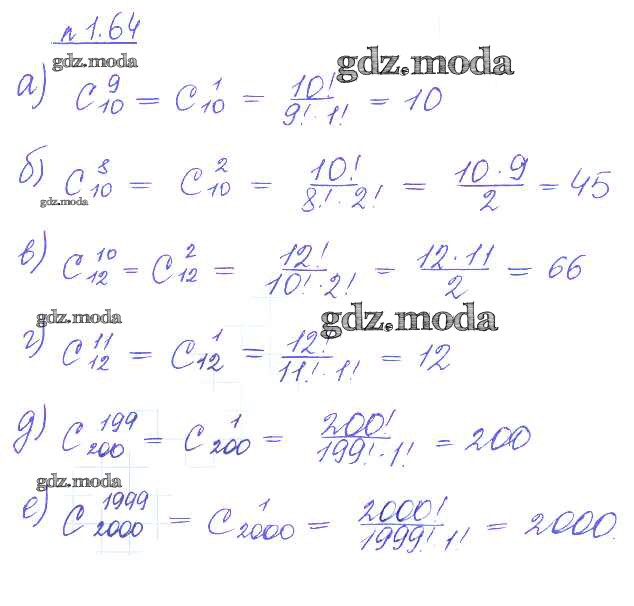 n 1.64
gdz.moda
gdz.moda
а) C₁₀⁹ = C₁₀¹ = 10!/(9!·1!) = 10
б) C₁₀⁸ = C₁₀² = 10!/(8!·2!) = (10·9)/2 = 45
gdz.moda
в) C₁₂¹⁰ = C₁₂² = 12!/(10!·2!) = (12·11)/2 = 66
gdz.moda
gdz.moda
г) C₁₂¹¹ = C₁₂¹ = 12!/(11!·1!) = 12
д) C₂₀₀¹⁹⁹ = C₂₀₀¹ = 200!/(199!·1!) = 200
gdz.moda
е) C₂₀₀₀¹⁹⁹⁹ = C₂₀₀₀¹ = 2000!/(1999!·1!) = 2000.